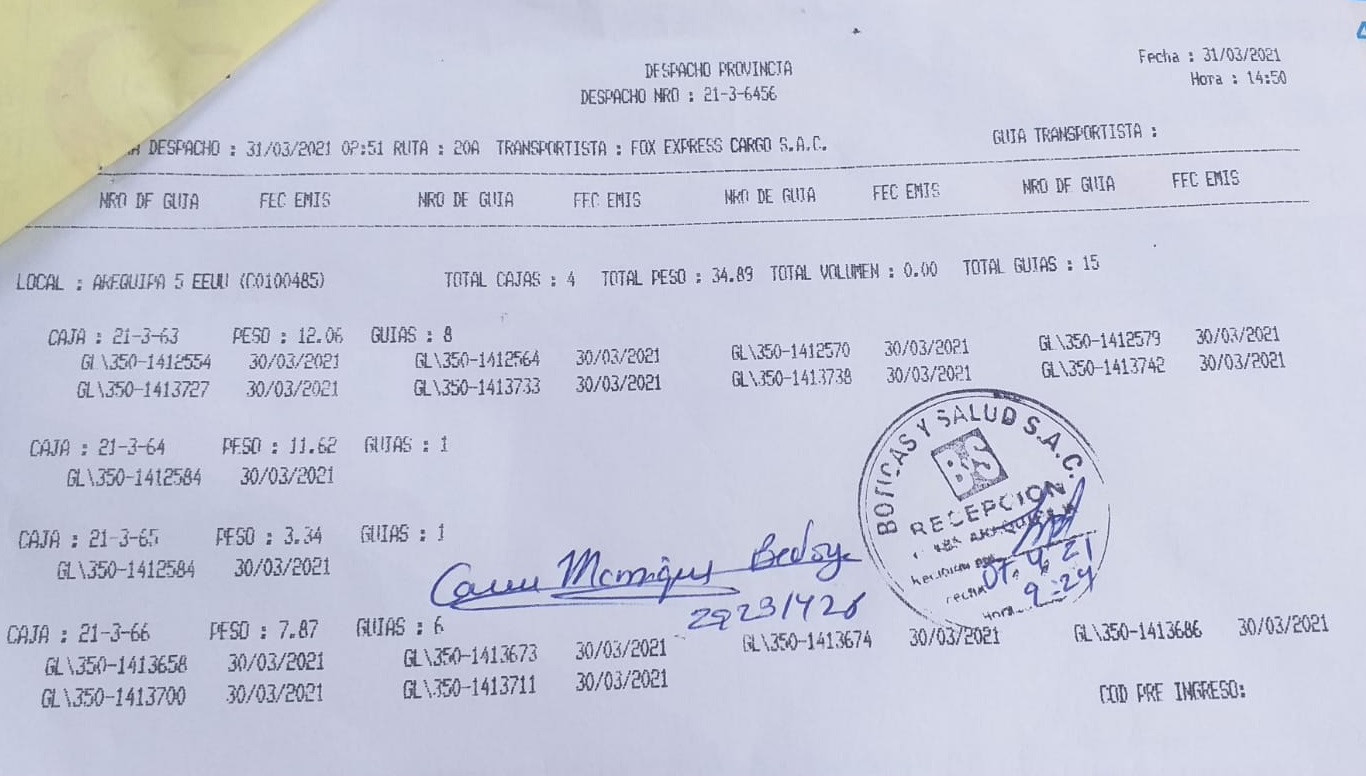 Fecha : 31/03/2021
DESPACHO PROVINCIA
Hora : 14:50
DESPACHO NRO : 21-3-6456
DESPACHO : 31/03/2021 02:51 RUTA : 20A TRANSPORTISTA : FOX EXPRESS CARGO S.A.C. GUIA TRANSPORTISTA :
NRO DE GUIA FEC EMIS NRO DE GUIA FEC EMIS NRO DE GUIA FEC EMIS NRO DE GUIA FEC EMIS
LOCAL : AREQUIPA 5 EEUU (C0100485) TOTAL CAJAS : 4 TOTAL PESO : 34.89 TOTAL VOLUMEN : 0.00 TOTAL GUIAS : 15
CAJA : 21-3-63 PESO : 12.06 GUIAS : 8
GL\350-1412554 30/03/2021 GL\350-1412564 30/03/2021 GL\350-1412570 30/03/2021 GL\350-1412579 30/03/2021
GL\350-1413727 30/03/2021 GL\350-1413733 30/03/2021 GL\350-1413738 30/03/2021 GL\350-1413742 30/03/2021
CAJA : 21-3-64 PESO : 11.62 GUIAS : 1
GL\350-1412584 30/03/2021
BOTICAS Y SALUD S.A.C.
BS
RECEPCION
CAJA : 21-3-65 PESO : 3.34 GUIAS : 1
GL\350-1412584 30/03/2021
Manrique Bedoya
29231426
07.4.21
9:24
CAJA : 21-3-66 PESO : 7.87 GUIAS : 6
GL\350-1413658 30/03/2021 GL\350-1413673 30/03/2021 GL\350-1413674 30/03/2021 GL\350-1413686 30/03/2021
GL\350-1413700 30/03/2021 GL\350-1413711 30/03/2021
COD PRE INGRESO: